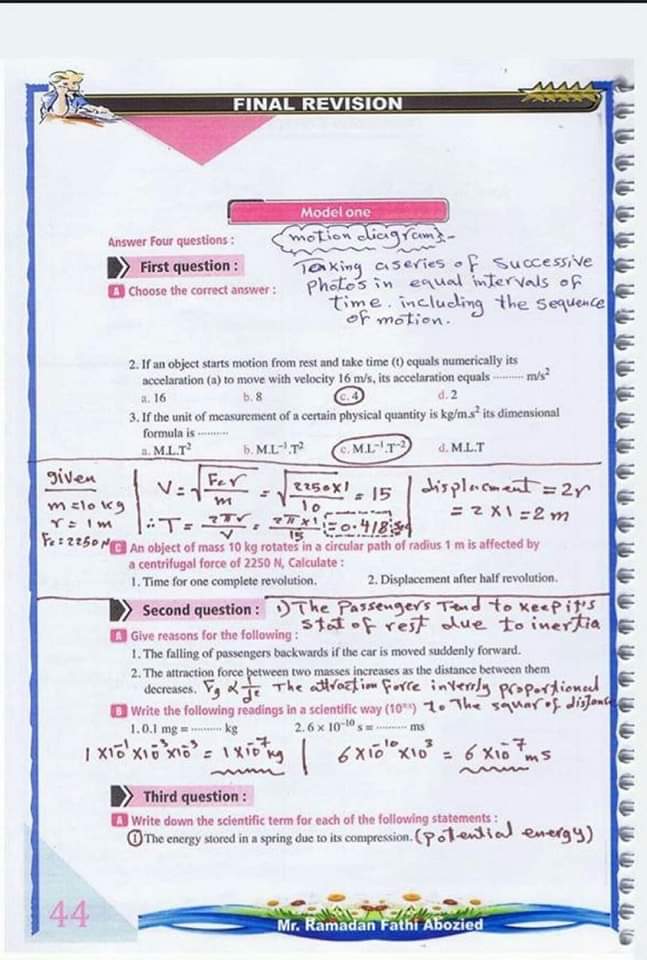 FINAL REVISION
Model one
Answer Four questions :
motion diagram :-
First question :
Taking a series of successive
photos in equal intervals of
time. including the sequence
of motion.
A Choose the correct answer :
2. If an object starts motion from rest and take time (t) equals numerically its
accelaration (a) to move with velocity 16 m/s, its accelaration equals ·········· m/s²
a. 16 b. 8 c. 4 d. 2
3. If the unit of measurement of a certain physical quantity is kg/m.s² its dimensional
formula is ··········
a. M.L.T² b. M.L⁻¹.T² c. M.L⁻¹.T⁻² d. M.L.T
given
m = 10 kg
r = 1 m
Fc = 2250 N
V = √(Fc r / m) = √(2250 × 1 / 10) = 15
∴ T = 2πr / V = 2π × 1 / 15 = 0.418 s
displacment = 2r
= 2 × 1 = 2 m
C An object of mass 10 kg rotates in a circular path of radius 1 m is affected by
a centrifugal force of 2250 N, Calculate :
1. Time for one complete revolution. 2. Displacement after half revolution.
Second question :
1) The Passengers Tend to keep it's
stat of rest due to inertia
A Give reasons for the following :
1. The falling of passengers backwards if the car is moved suddenly forward.
2. The attraction force between two masses increases as the distance between them
decreases. Fg ∝ 1/d² The attraction force inversly proportional
to The squar of distance
B Write the following readings in a scientific way (10±ˣ)
1. 0.1 mg = ·········· kg 2. 6 × 10⁻¹⁰ s = ·········· ms
1 × 10⁻¹ × 10⁻³ × 10⁻³ = 1 × 10⁻⁷ kg
6 × 10⁻¹⁰ × 10³ = 6 × 10⁻⁷ ms
Third question :
A Write down the scientific term for each of the following statements :
1 The energy stored in a spring due to its compression. (potential energy)
44
Mr. Ramadan Fathi Abozied